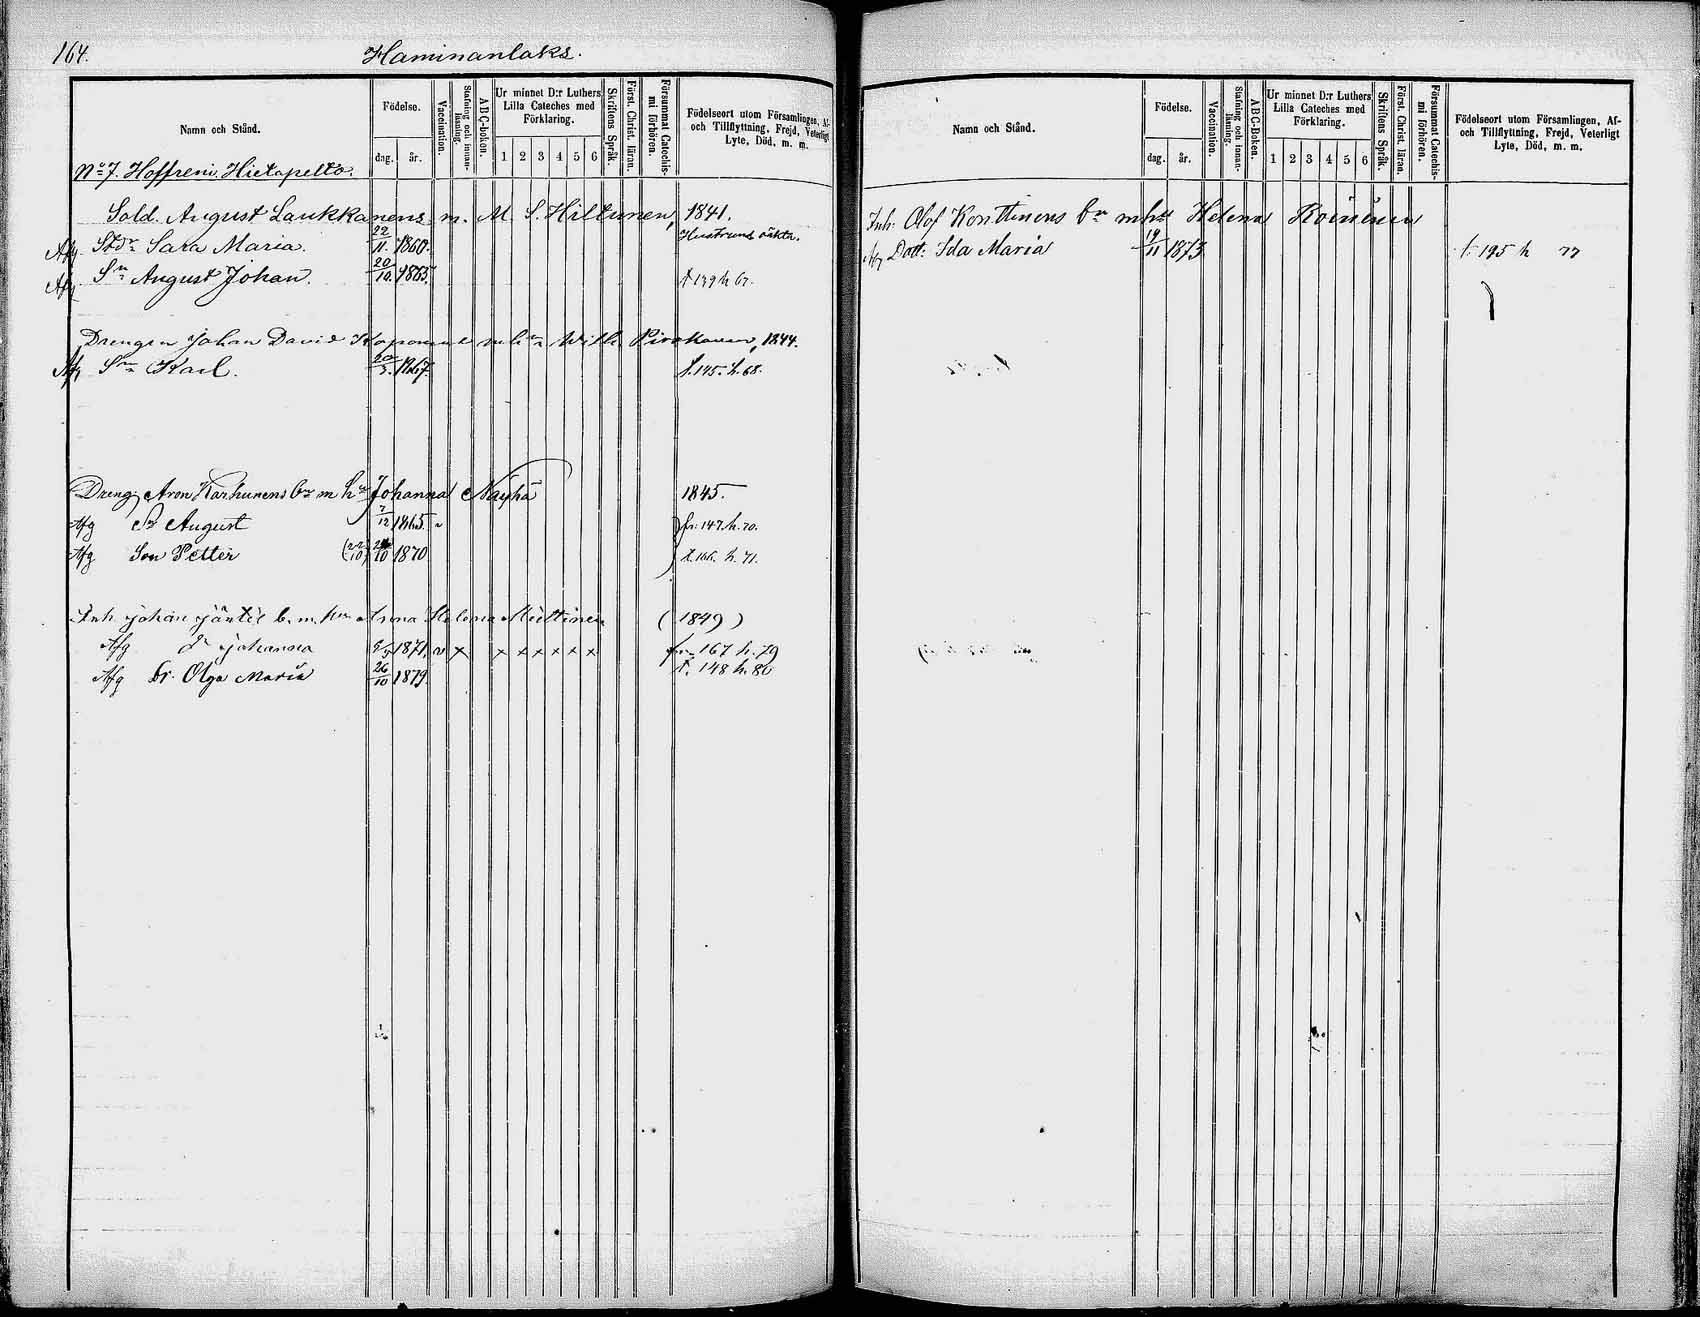 164.
Haminanlaks.
Namn och Stånd.
Födelse.
dag.
år.
Vaccination.
Stafning och innan-läsning.
ABC-boken.
Ur minnet D:r Luthers Lilla Cateches med Förklaring.
1 2 3 4 5 6
Skriftens Språk.
Först. Christ. läran.
Försummat Catechis-mi förhören.
Födelseort utom Församlingen, Af-
och Tillflyttning, Frejd, Veterligt
Lyte, Död, m. m.
No 7. Hoffreni, Hietapelto.
Sold. August Laukkanens m. M. S. Hiltunen, 1841.
Afg Stdr Sara Maria. 22/11. 1860. Hustruns oäkta.
Afg Sn August Johan. 20/10. 1865. t 139 h 67.
Drengen Johan David m. hu Wilh. 1844.
Afg Sn Karl. 20/3. 1867. f. 145. h. 68.
Dreng Aron Karhunens br m hu Johanna Näyhä 1845.
Afg Sn August 7/12 1865 fr: 147. h. 70.
Afg Son Petter (22/10) 24/10 1870 t. 166. h. 71.
Inh Johan Jäntti b. m. hu Anna Helena Miettinen (1849)
Afg dr Johanna 1871. x x x x x x x fr. 167 h. 79
Afg Dr. Olga Maria 26/10 1879. t. 148 h. 80
Namn och Stånd.
Födelse.
dag.
år.
Vaccination.
Stafning och innan-läsning.
ABC-Boken.
Ur minnet D:r Luthers Lilla Cateches med Förklaring.
1 2 3 4 5 6
Skriftens Språk.
Först. Christ. läran.
Försummat Catechis-mi förhören.
Födelseort utom Församlingen, Af-
och Tillflyttning, Frejd, Veterligt
Lyte, Död, m. m.
Inh: Olof Konttinens br m hu Helena Roininen
Afg Dott: Ida Maria 19/11 1873 f. 195 h 77